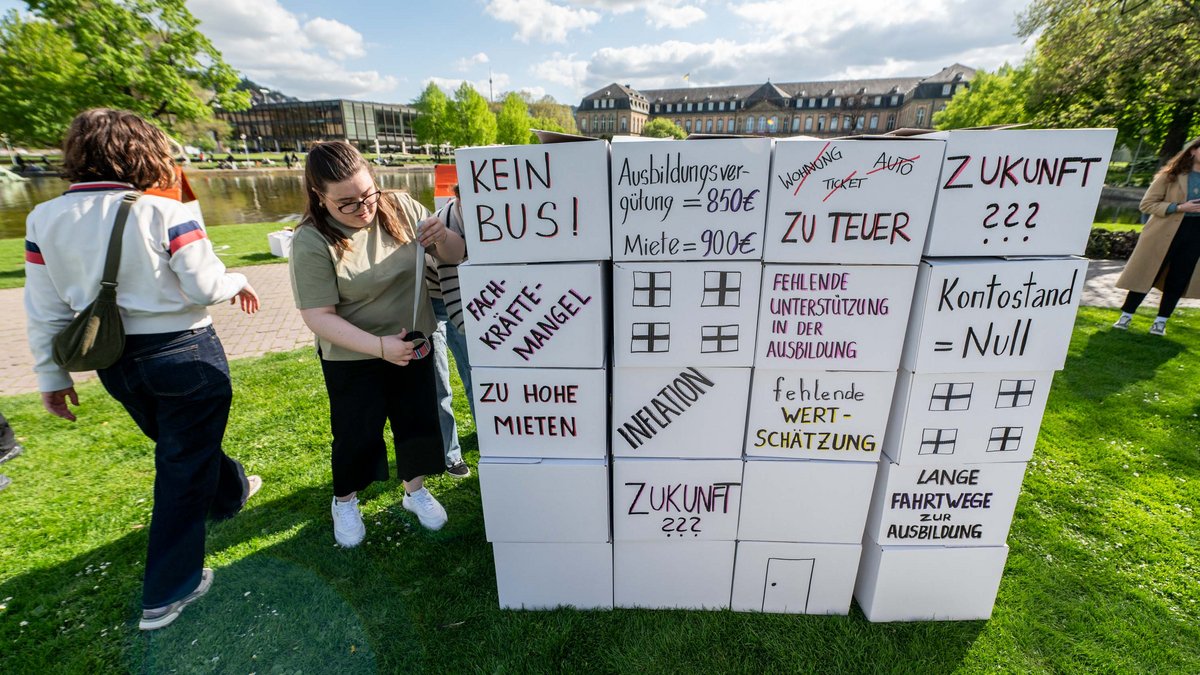 KEIN
BUS!
Ausbildungsver-
gütung = 850€
Miete = 900€
WOHNUNG
TICKET
AUTO
ZU TEUER
ZUKUNFT
???
FACH-
KRÄFTE-
MANGEL
FEHLENDE
UNTERSTÜTZUNG
IN DER
AUSBILDUNG
Kontostand
= Null
ZU HOHE
MIETEN
INFLATION
fehlende
WERT-
SCHÄTZUNG
ZUKUNFT
???
LANGE
FAHRTWEGE
ZUR
AUSBILDUNG